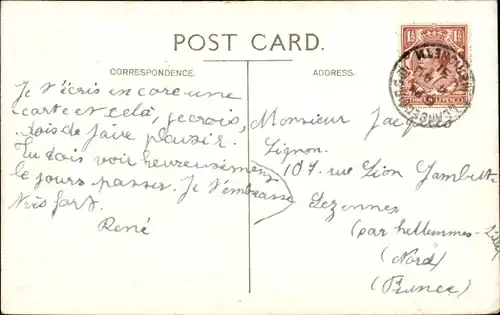 POST CARD.
CORRESPONDENCE.
ADDRESS.
Je t'écris encore une
carte et cela, je crois,
dois de faire plaisir.
Tu dois voir heureusement
le jours passer. Je t'embrasse
très fort.
René
Monsieur Jacques
Lignon.
107, rue Léon Jambet
Lezennes
(par hellemmes-Lille)
(Nord)
(France)